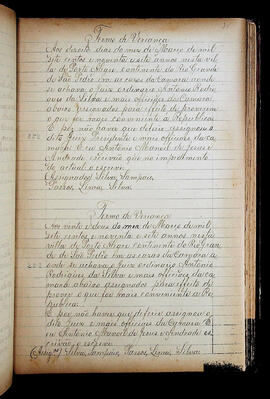 Termo de Veriança
Aos dezoito dias do mez de Março de mil
sete centos e noventa e sete annos nesta vil
la de Porto Alegre continente do Rio Grande
de São Pedro em as casas da Camara aonde
se achava o Juiz ordinario Antonio Rodri
gues da Silva e mais officiaes da Camara,
abaixo assignados para effeito de proverem
o que for mais conveniente a Republica
E por não haver que deferir assignou o
dito Juiz e mais officiaes da ca
mara. E eu Antonio Manoel de Jesus e
Andrade escrivão que no impedimento
do actual o escrevi.
(Assignados) Silva, Sampaio,
Passos, Lima, Silva.
Termo de Veriança
Aos vinte e dous do mez de Março de mil
sete centos e noventa e sete annos nesta
villa de Porto Alegre continente do Rio Gran
de de São Pedro em as casas da Camara a
onde se achava o Juiz ordinario Antonio
Rodrigues da Silva e mais officiaes da ca
mara abaixo assignados para effeito de
prover o que for mais conveniente a Re
publica.
E por não haver que deferir assignou
o dito Juiz e mais officiaes da Camara. E
eu Antonio Manoel de Jesus e Andrade es
crivão o escrevi.
(Assig.) Silva, Sampaio, Passos, Lima, Silva.